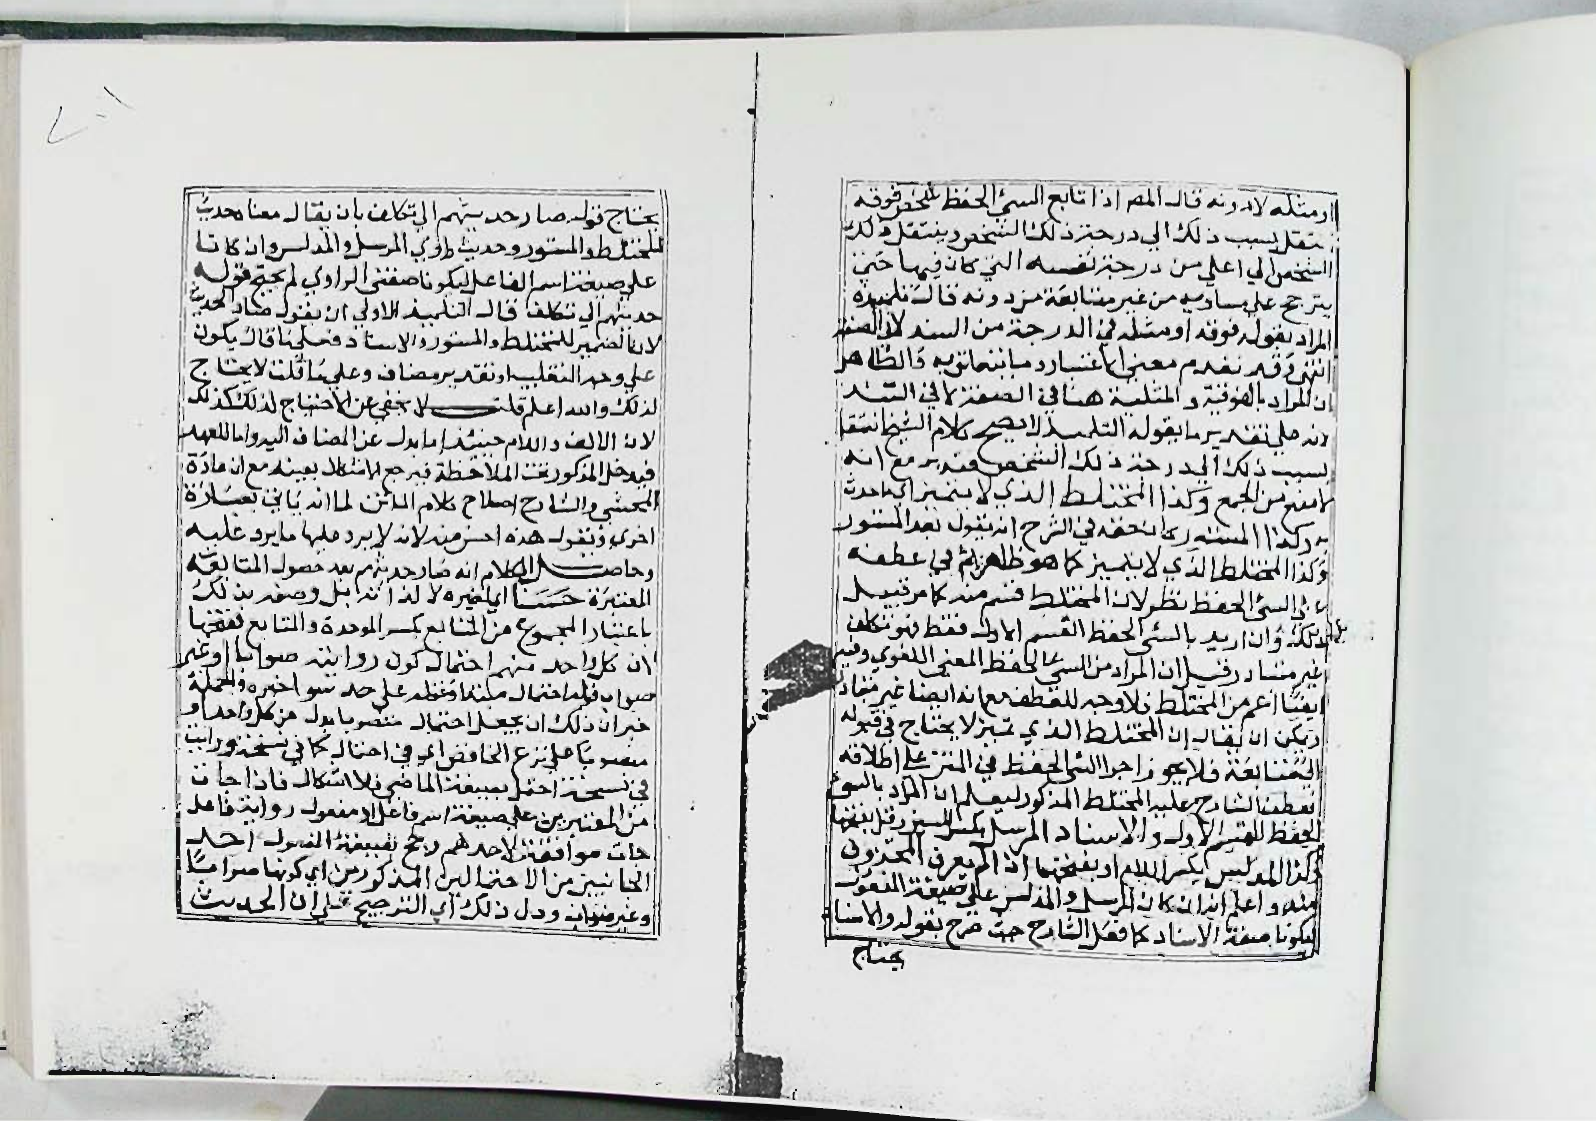 او مثله لا دونه قال المص اذا تابع السيئ الحفظ شخص فوقه
انتقل بسبب ذلك الي درجة ذلك الشخص وينتقل ذلك
الشخص الي اعلي من درجة نفسه التي كان فيها حتي
يترجح علي مساويه من غير متابعة من دونه قال تلميذه
المراد بقوله فوقه او مثله في الدرجة من السند لا في الصفة
انتهي وقد تقدم معني الاعتبار وما يتعلق به والظاهر
ان المراد بالفوقية والمثلية هنا في الصفة لا في السند
لانه علي تقدير ما يقوله التلميذ لا يصح كلام الشيخ انتقل
بسبب ذلك الي درجة ذلك الشخص فتدبر مع انه
لا منع من الجمع وكذا المختلط الذي لا يتميز اي ما حدث
به وكذا المستور كان حقه في الشرح ان يقول بعد المستور
وكذا المختلط الذي لا يتميز كما هو ظاهر ثم في عطفه
علي السيئ الحفظ نظر لان المختلط قسم منه كما مر قبيل
ذلك وان اريد بالسيئ الحفظ القسم الاول فقط فهو تكلف
غير متبادر وقيل ان المراد من السيئ الحفظ المعني اللغوي وفيه
ايضا اعم من المختلط فلا وجه للعطف مع انه ايضا غير مفاد
ويمكن ان يقال ان المختلط الذي تميز لا يحتاج في قبوله
الي متابعة فلا يجوز اجرا السيئ الحفظ في المتن علي اطلاقه
فعطف الشارح عليه المختلط المذكور ليعلم ان المراد بالسيئ
الحفظ القسم الاول والاسناد المرسل بكسر السين وقيل بفتحها
وكذا المدلس بكسر اللام او بفتحها اذا لم يعرف المحذوف
منه واعلم انه ان كان المرسل والمدلس علي صيغة المفعول
ليكونا صفة الاسناد كما فعل الشارح حيث صرح بقوله والاسنا
يحتاج
يحتاج قوله صار حديثهم الي تكلف بان يقال معناه حديث
المختلط والمستور وحديث راوي المرسل والمدلس وان كانا
علي صيغة اسم الفاعل ليكونا صفتي الراوي لم يحتج قوله
حديثهم الي تكلف قال التلميذ الاولي ان يقول صار الحديث
لان الضمير للمختلط والمستور والاسناد فعلي ما قال يكون
علي وجه التغليب او تقدير مضاف وعلي ما قلت لا يحتاج
لذلك والله اعلم قلت لا يخفي عن الاحتياج لذلك كذلك
لان الالف واللام حينئذ اما بدل عن المضاف اليه واما للعهد
فيدخل المذكور تحت الملاحظة فيرجع الاشكال بعينه مع ان عادة
المحشي والشارح اصلاح كلام الماتن لما انه ياتي بعبارة
اخري ويقول هذه احسن منه لانه لا يرد عليها ما يرد عليه
وحاصل الكلام انه صار حديثهم بعد حصول المتابعة
المعتبرة حسنا اي لغيره لا لذاته بل وصفه بذلك
باعتبار المجموع من المتابع بكسر الموحدة والمتابع بفتحها
لان كل واحد منهم احتمال كون روايته صوابا او غير
صواب قوله احتمال مبتدا وقوله علي حد سوا خبره والجملة
خبر ان ذلك ان يجعل احتمال منصوبا بدل من كل واحد او
منصوبا علي نزع الخافض اي في احتمال كما في نسخة ورايت
في نسخة احتمل بصيغة الماضي فلا اشكال فاذا جات
من المعتبرين علي صيغة اسم فاعل او مفعول رواية فاعل
جات موافقة لاحدهم رجح بصيغة المفعول احد
الجانبين من الاحتمالين المذكورين اي كونها صوابا
وغير صواب ودل ذلك اي الترجيح علي ان الحديث